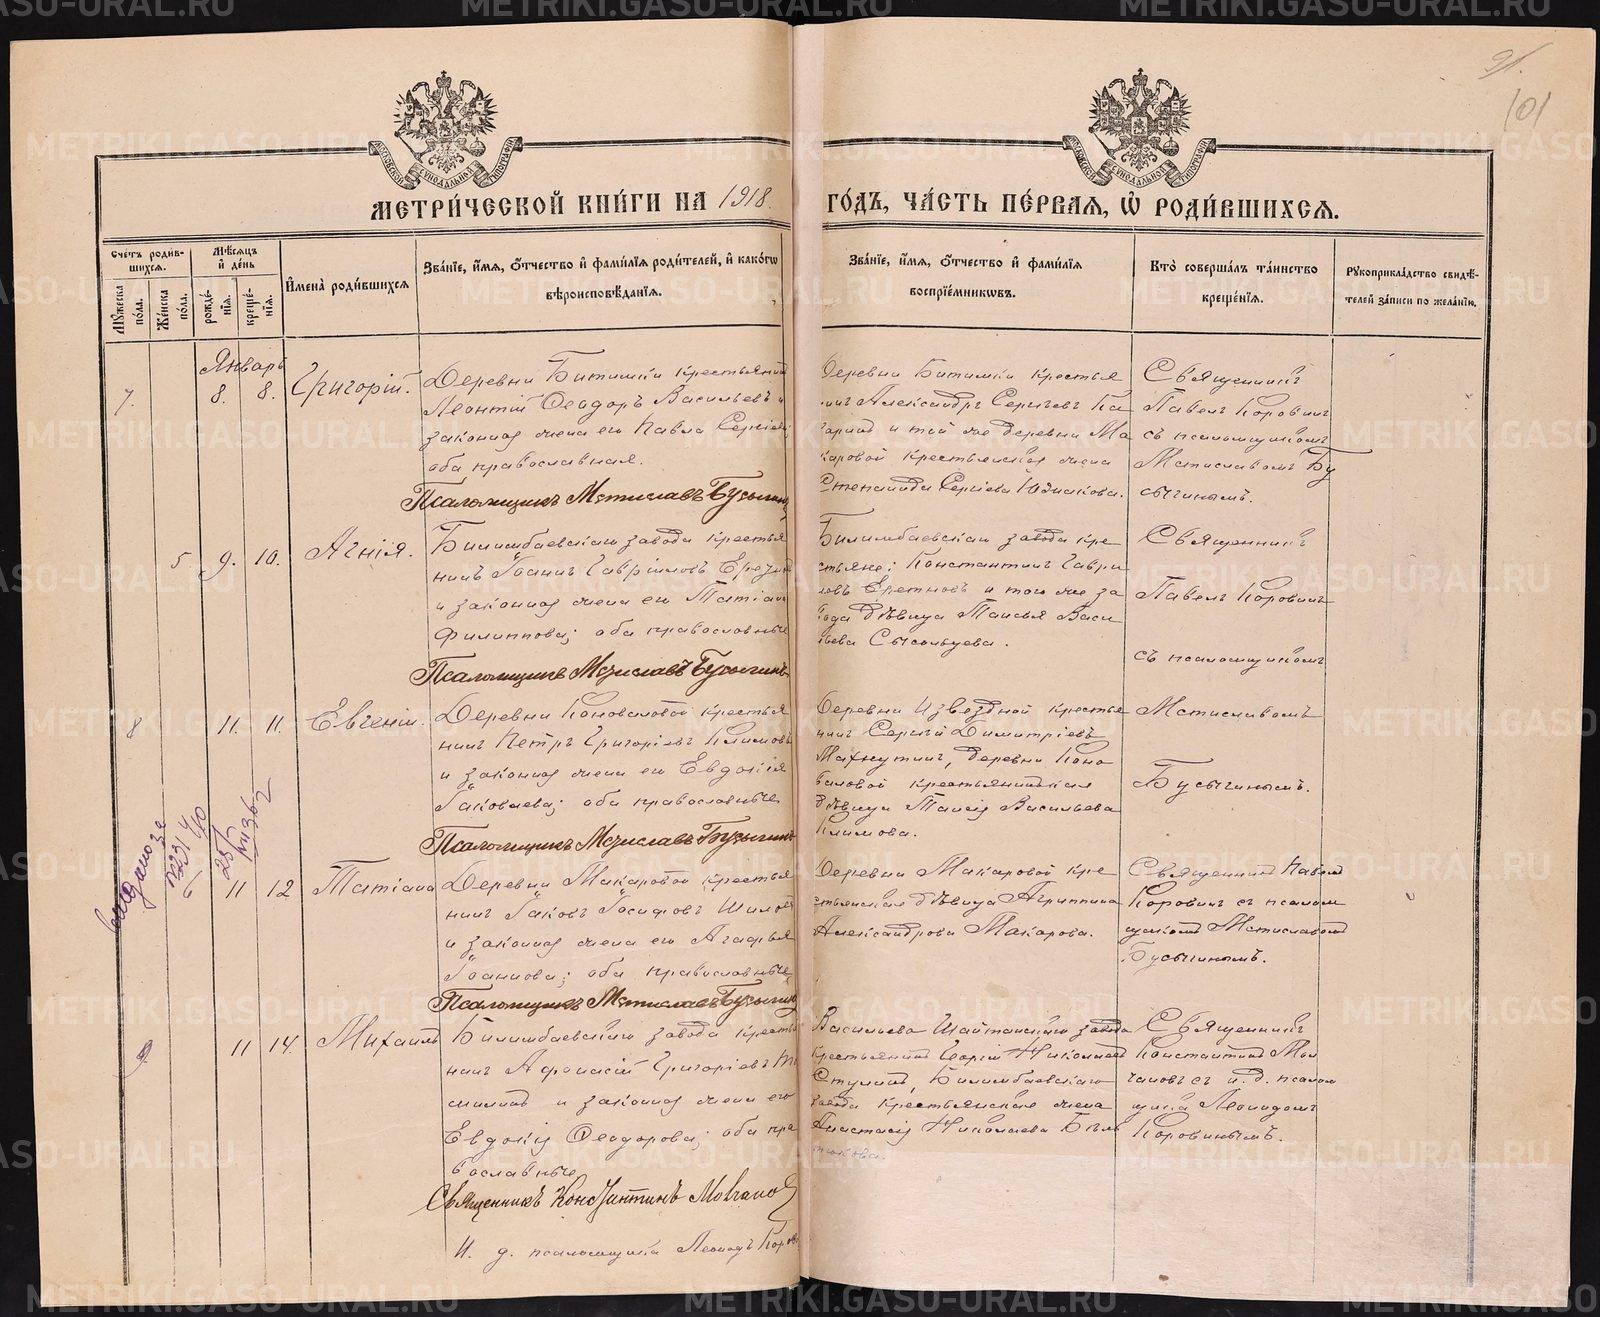 91.
101
МЕТРИ́ЧЕСКОЙ КНИ́ГИ НА 1918 ГО́ДЪ, ЧА́СТЬ ПЕ́РВАЯ, Ѿ РОДИ́ВШИХСЯ.
Сче́тъ роди́вшихся.
Му́жеска по́ла.
Же́нска по́ла.
Мѣ́сяцъ и҆ де́нь
рожде́нїя.
креще́нїя.
И҆мена̀ роди́вшихся
Зва́нїе, и҆́мя, ѻ҆́тчество и҆ фами́лїя роди́телей, и҆ како́гѡ вѣроисповѣ́данїя.
Зва́нїе, и҆́мя, ѻ҆́тчество и҆ фами́лїя воспрїе́мникѡвъ.
Кто̀ соверша́лъ та́инство креще́нїя.
Рꙋкоприкла́дство свидѣ́телей за́писи по жела́нїю.
Январь
7. 8. 8. Григорій.
Деревни Битимки крестьянинъ
Леонтій Ѳеодоръ Васильевъ и
законная жена его Павла Сергіева;
оба православная.
Псаломщикъ Мстиславъ Бусыгинъ
Деревни Битимки крестья
нинъ Александръ Сергѣевъ
и той же деревни Ма
каровой крестьянская жена
Степанида Сергіева
Священникъ
Павелъ Коровинъ
съ псаломщикомъ
Мстиславомъ Бу
сыгинымъ.
5 9. 10. Агнія.
Билимбаевскаго завода крестья
нинъ Іоаннъ Гавріиловъ
и законная жена его Татіана
Филиппова; оба православные
Псаломщикъ Мстиславъ Бусыгинъ
Билимбаевскаго завода кре
стьяне: Константинъ Гаври
ловъ и того же за
вода дѣвица Таисья Васи
льева Сысольцева.
Священникъ
Павелъ Коровинъ
съ псаломщикомъ
Мстиславомъ
Бусыгинымъ.
8 11. 11. Евгеній.
Деревни Коноваловой крестья
нинъ Петръ Григоріевъ Климовъ
и законная жена его Евдокія
Іаковлева; оба православные
Псаломщикъ Мстиславъ Бусыгинъ
Деревни Извѣздной крестья
нинъ Сергій Димитріевъ
Махнутинъ, деревни Коно
валовой крестьянская
дѣвица Таисія Васильева
Климова.
11 12 Татіана
Деревни Макаровой крестья
нинъ Іаковъ Іосифовъ Шиловъ
и законная жена его Агафья
Іоаннова; оба православные
Псаломщикъ Мстиславъ Бусыгинъ
Деревни Макаровой кре
стьянская дѣвица Агриппина
Александрова Макарова.
Священникъ Павелъ
Коровинъ съ псалом
щикомъ Мстиславомъ
Бусыгинымъ.
11 14. Михаилъ
Билимбаевскаго завода крестья
нинъ Аѳанасій Григоріевъ
и законная жена его
Евдокія Ѳеодорова; оба пра
вославные
Священникъ Константинъ Молчановъ
И. д. псаломщика Леонидъ Коров
Васильево Шайтанскаго завода
крестьянинъ Георгій Николаевъ
Ступинъ, Билимбаевскаго
завода крестьянская жена
Анастасія Николаева
Священникъ
Константинъ Мол
чановъ съ и. д. псалом
щика Леонидомъ
Коровинымъ.
METRIKI.GASO-URAL.RU